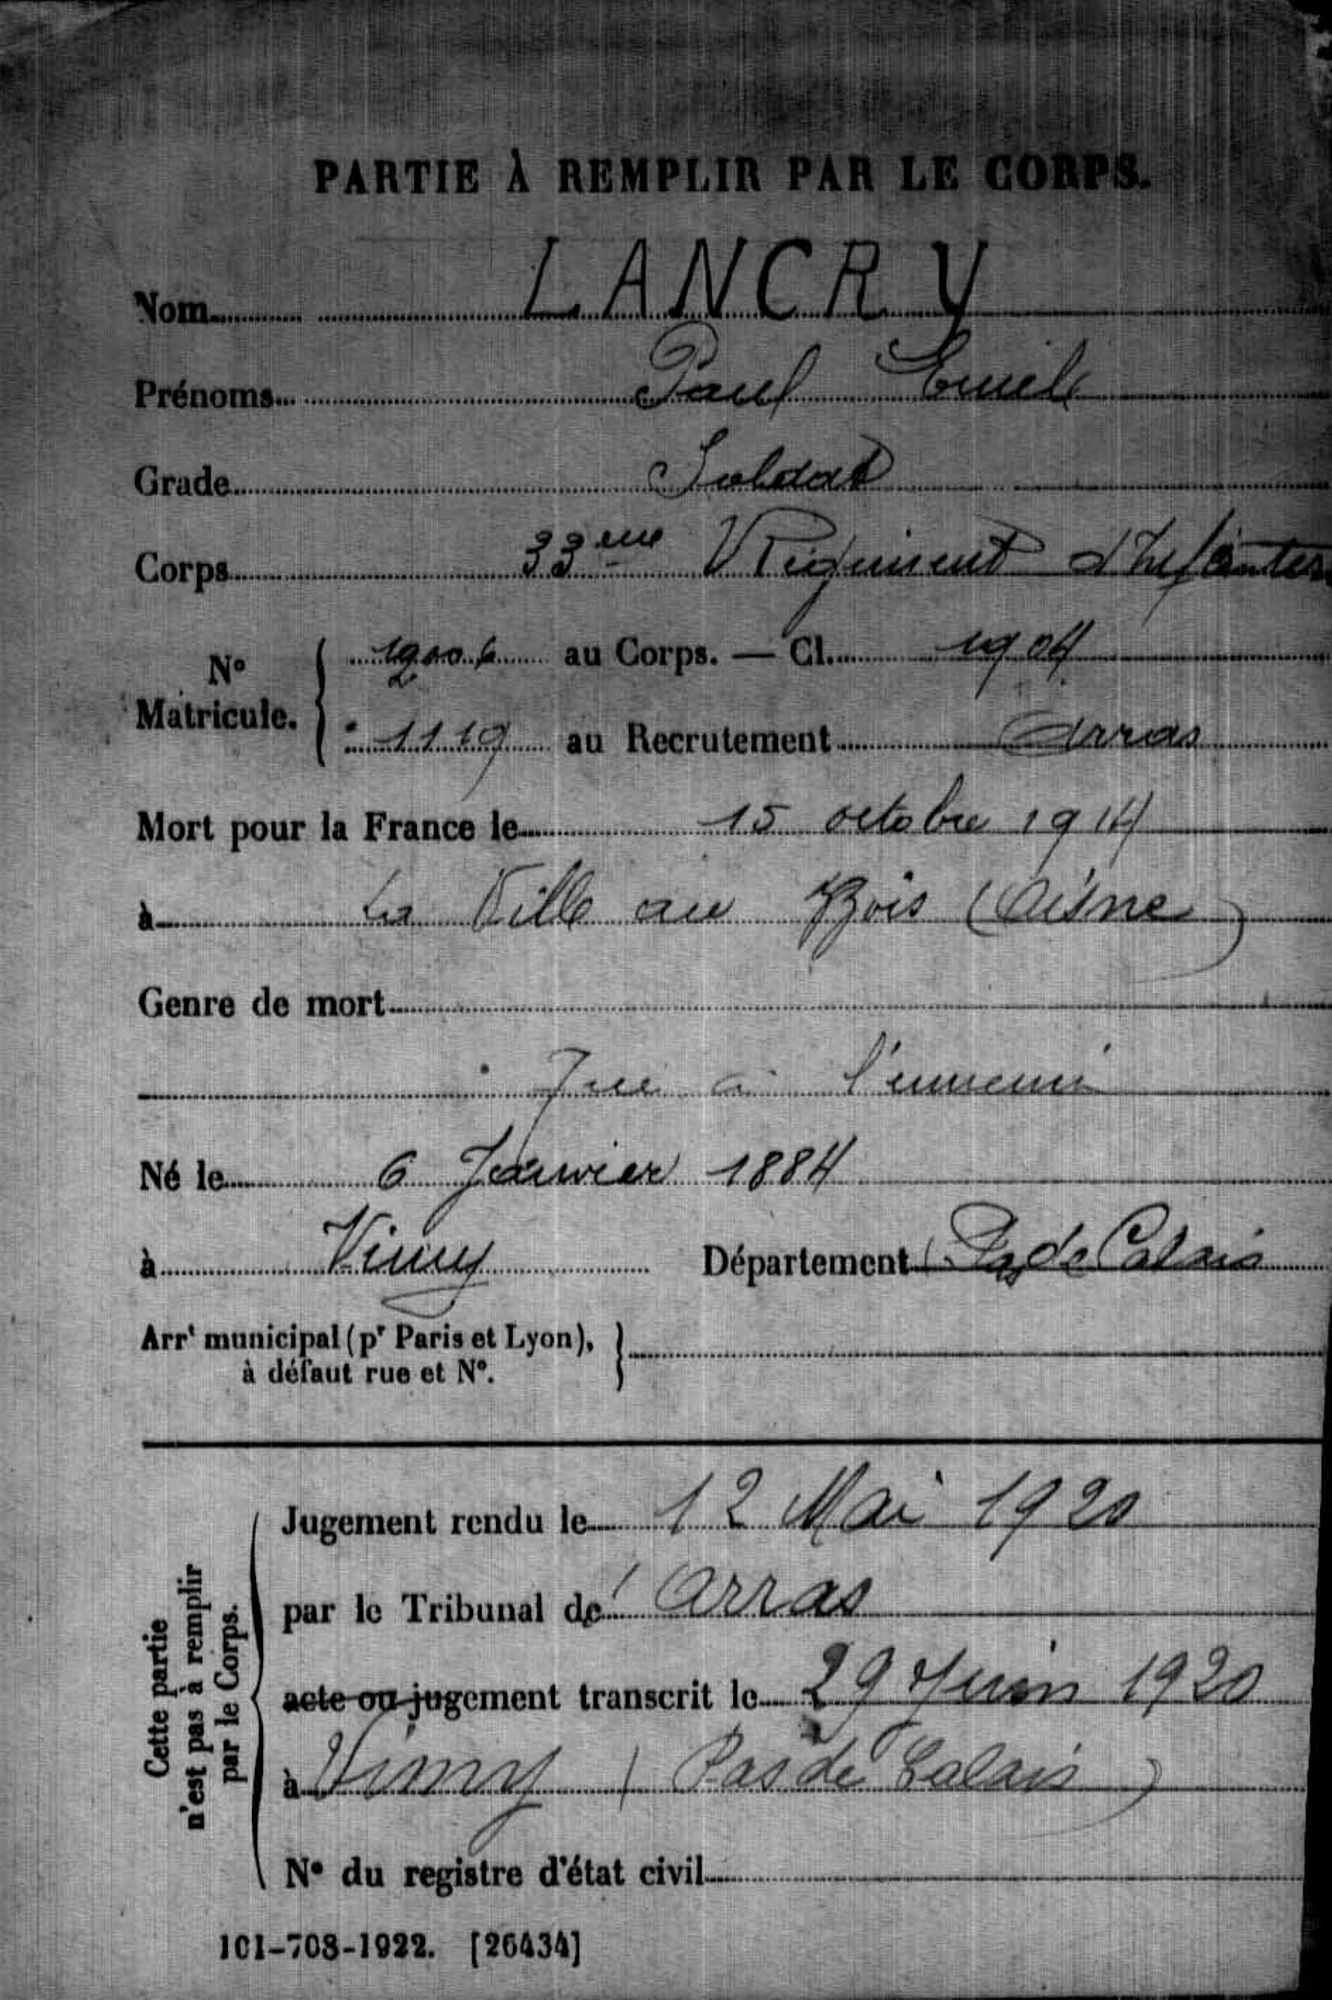 PARTIE À REMPLIR PAR LE CORPS.
Nom LANCRY
Prénoms Paul Emile
Grade Soldat
Corps 33eme Régiment d'Infanterie
N° Matricule. au Corps. — Cl. 1904
1119 au Recrutement Arras
Mort pour la France le 15 octobre 1914
à La Ville au Bois (Aisne)
Genre de mort
Tué à l'ennemi
Né le 6 Janvier 1884
à Vimy Département Pas de Calais
Arrt municipal (pr Paris et Lyon),
à défaut rue et N°.
Cette partie
n'est pas à remplir
par le Corps.
Jugement rendu le 12 Mai 1920
par le Tribunal de Arras
acte ou jugement transcrit le 29 Juin 1920
à Vimy (Pas de Calais)
N° du registre d'état civil
101-708-1922. [26434]